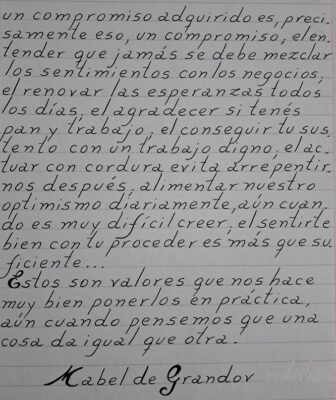 un compromiso adquirido es, preci-
samente eso, un compromiso, el en-
tender que jamás se debe mezclar
los sentimientos con los negocios,
el renovar las esperanzas todos
los días, el agradecer si tenés
pan y trabajo, el conseguir tu sus-
tento con un trabajo digno, el ac-
tuar con cordura evita arrepentir-
nos después, alimentar nuestro
optimismo diariamente, aún cuan-
do es muy difícil creer, el sentirte
bien con tu proceder es más que su-
ficiente...
Estos son valores que nos hace
muy bien ponerlos en práctica,
aún cuando pensemos que una
cosa da igual que otra.
Mabel de Grandov